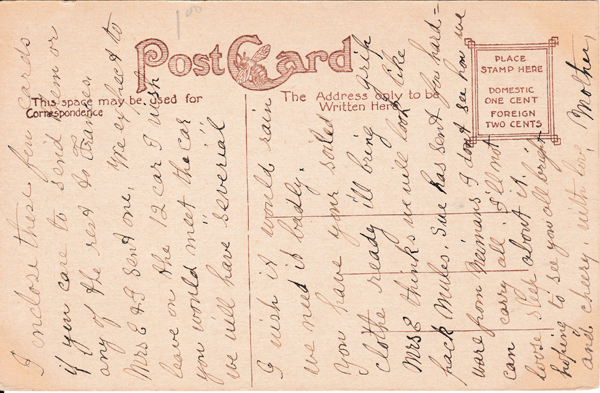 Post Card
This space may be used for
Correspondence
The Address only to be
Written Here
PLACE
STAMP HERE
DOMESTIC
ONE CENT
FOREIGN
TWO CENTS
1 00
I enclose these few cards
if you care to send them or
any of the rest to Frances,
Mrs E & I sent one. We expect to
leave on the 12 car I wish
you would meet the car
we will have "several"
I wish it would rain
we need it badly.
You have your soiled
clothe ready ill bring grip
Mrs E thinks we will look like
pack mules Sue has sent you hard=
ware from Neimans I don't see how we
can carry all. I'll not
loose sleep about it.
hoping to see you all bright
and cheery, with love, Mother,